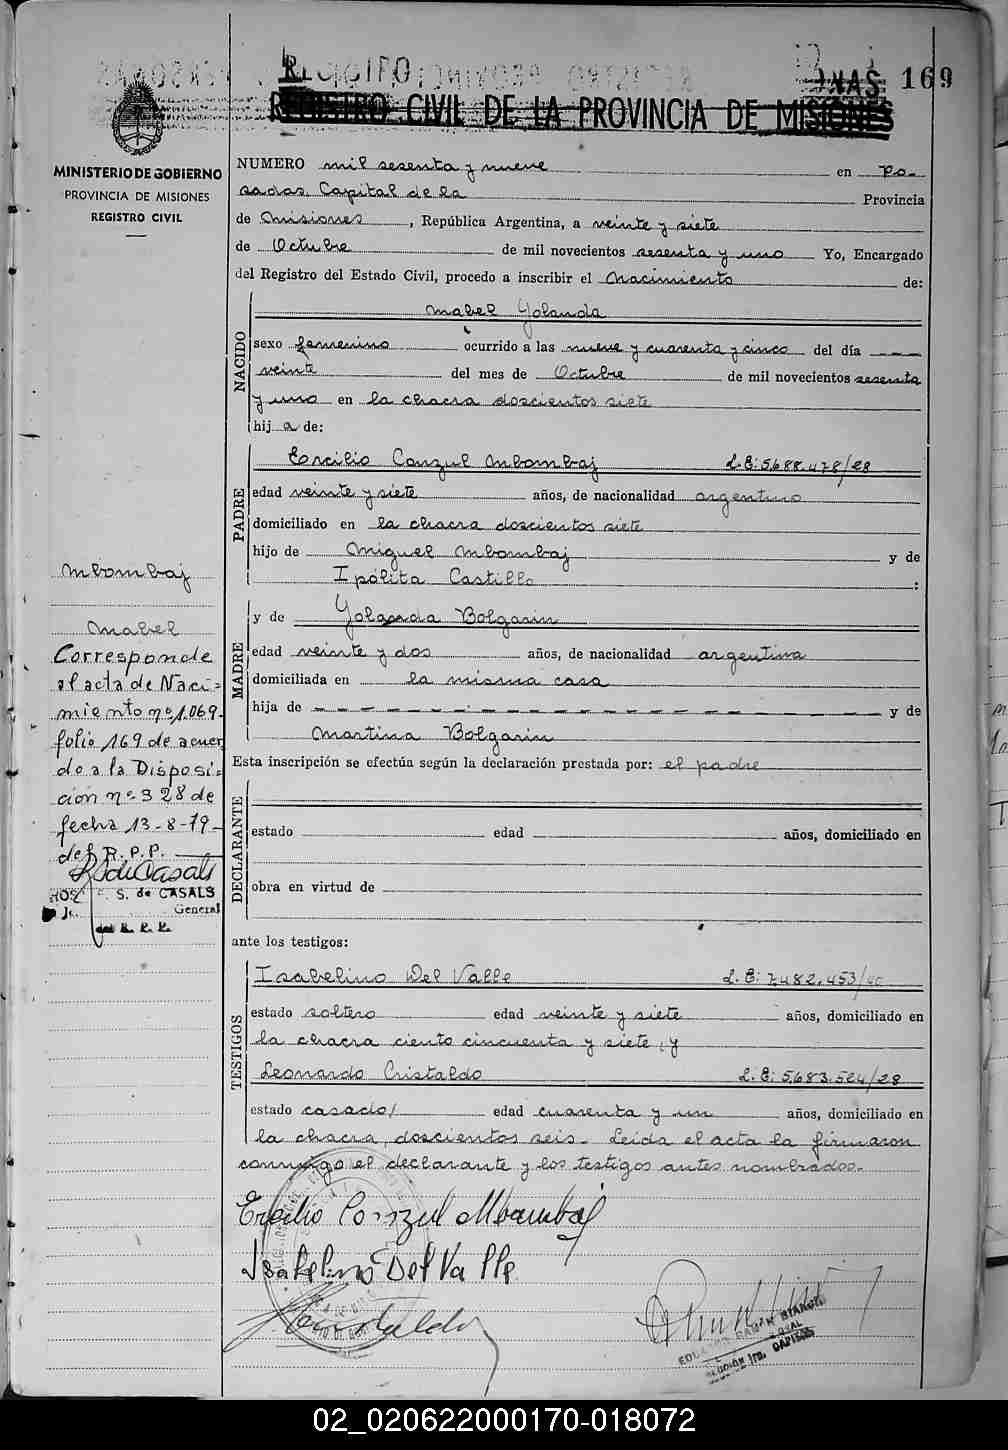 169
REGISTRO CIVIL DE LA PROVINCIA DE MISIONES
MINISTERIO DE GOBIERNO
PROVINCIA DE MISIONES
REGISTRO CIVIL
NUMERO mil sesenta y nueve en Po-
sadas, Capital de la Provincia
de Misiones, República Argentina, a veinte y siete
de Octubre de mil novecientos sesenta y uno Yo, Encargado
del Registro del Estado Civil, procedo a inscribir el Nacimiento de:
NACIDO
Mabel Yolanda
sexo femenino ocurrido a las nueve y cuarenta y cinco del día ---
veinte del mes de Octubre de mil novecientos sesenta
y uno en la chacra doscientos siete
hij a de:
PADRE
Ercilio Conzul Mbombaj L.E: 5.688.478/28
edad veinte y siete años, de nacionalidad argentino
domiciliado en la chacra doscientos siete
hijo de Miguel Mbombaj y de
Ipólita Castillo :
MADRE
y de Yolanda Bolgarin
edad veinte y dos años, de nacionalidad argentina
domiciliada en la misma casa
hija de - - - - - - - - - - - - - - - - y de
Martina Bolgarin
Esta inscripción se efectúa según la declaración prestada por: el padre
DECLARANTE
estado edad años, domiciliado en
obra en virtud de
ante los testigos:
TESTIGOS
Isabelino Del Valle L.E: 7.482.453/40
estado soltero edad veinte y siete años, domiciliado en
la chacra ciento cincuenta y siete, y
Leonardo Cristaldo L.E: 5.683.524/28
estado casado/ edad cuarenta y un años, domiciliado en
la chacra, doscientos seis. Leida el acta la firmaron
conmigo el declarante y los testigos antes nombrados.-
Ercilio Conzul Mbombaj
Isabelino Del Valle
Cristaldo
EDUARDO RAMÓN BIANCHI
SECCION 1ra. CAPITAL
Mbombaj
Mabel
Corresponde
al acta de Naci=
miento nº 1.069-
folio 169 de acuer
do a la Disposi=
ción nº 328 de
fecha 13-8-79-
del R.P.P.
S. de CASALS
General
del R. P. P.
02_020622000170-018072